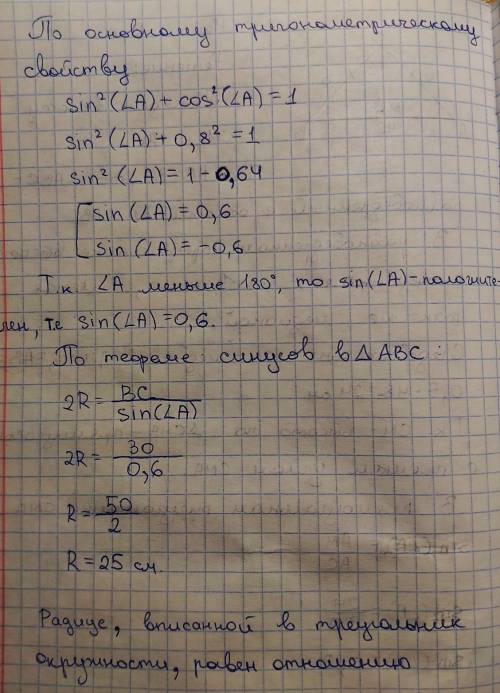 По основному тригонометрическому
свойству
sin²(∠A) + cos²(∠A) = 1
sin²(∠A) + 0,8² = 1
sin²(∠A) = 1 - 0,64
[ sin(∠A) = 0,6
sin(∠A) = -0,6
Т.к ∠A меньше 180°, то sin(∠A) - положите-
лен, т.е sin(∠A) = 0,6.
По теореме синусов в △ABC:
2R = BC / sin(∠A)
2R = 30 / 0,6
R = 50 / 2
R = 25 см.
Радиус, вписанной в треугольник
окружности, равен отношению